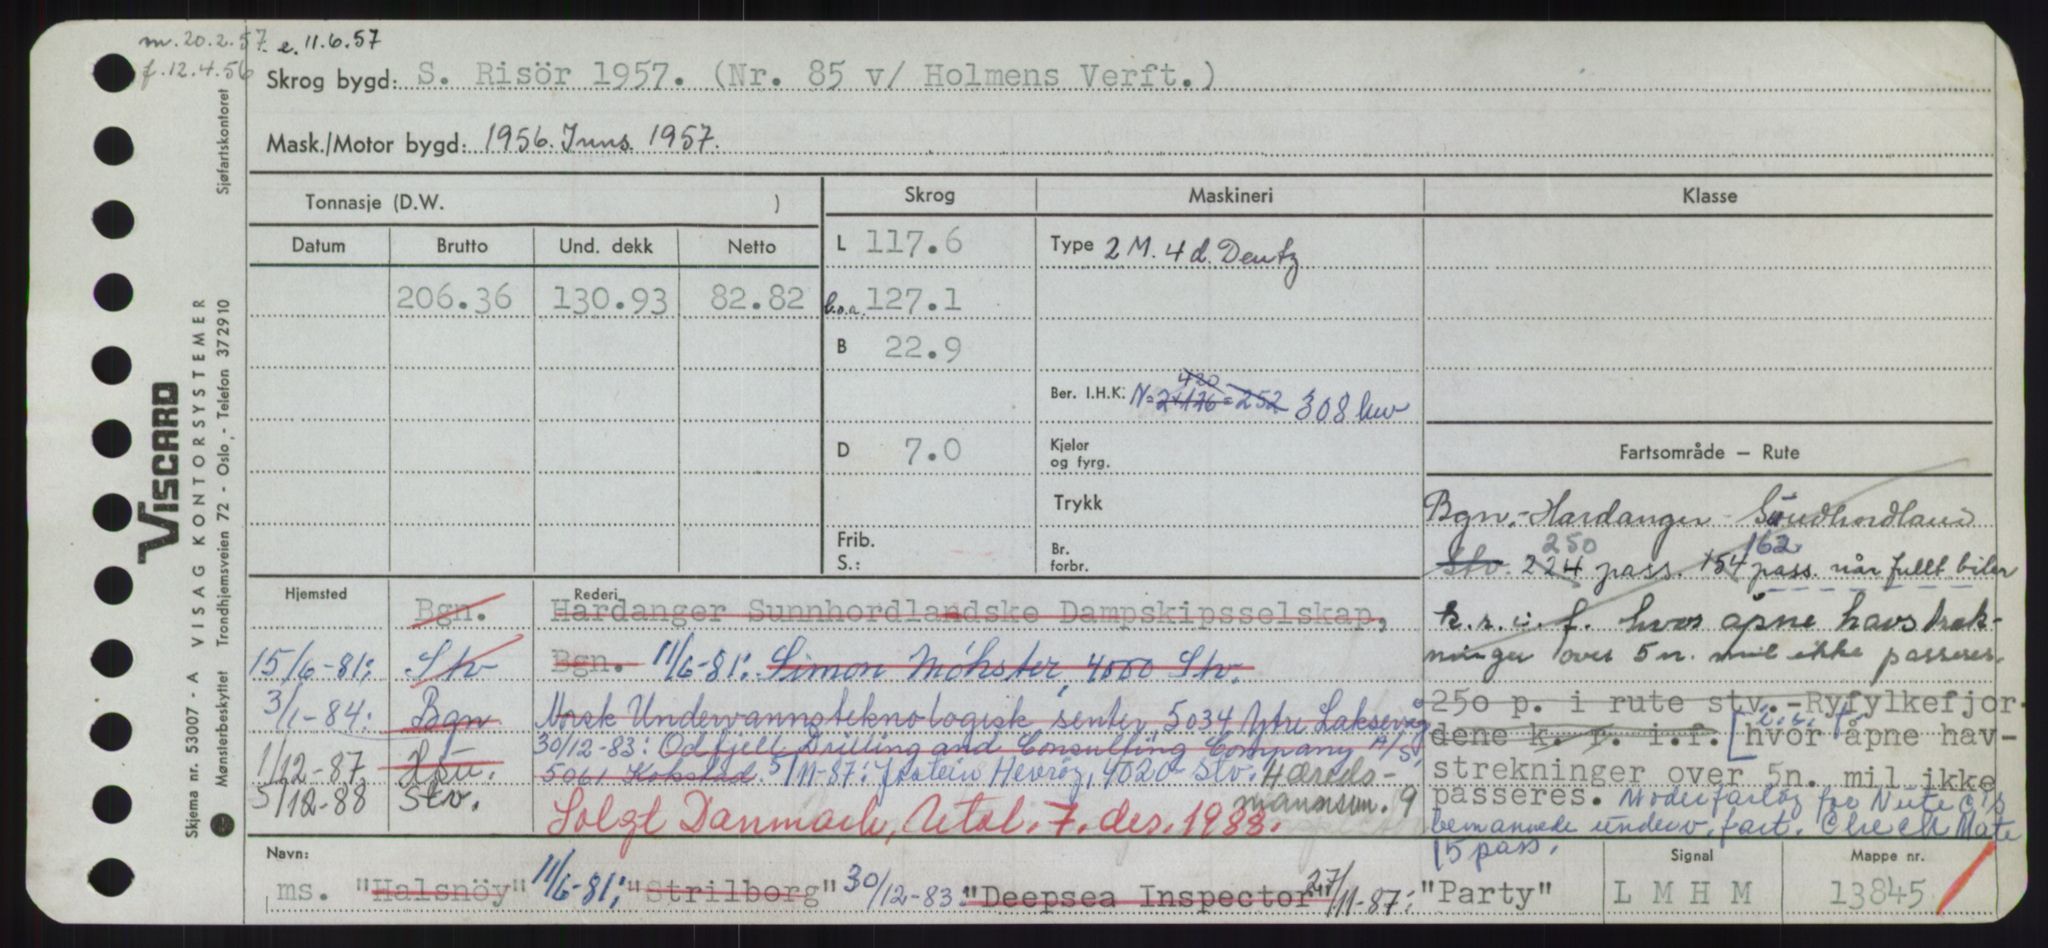 m. 20.2.57. e. 11.6.57
f. 12.4.56
Skrog bygd: S. Risör 1957. (Nr. 85 v/ Holmens Verft.)
Mask./Motor bygd: 1956. Inns. 1957.
Tonnasje (D.W. )
Datum Brutto Und. dekk Netto
206.36 130.93 82.82
Skrog
L 117.6
l.o.a. 127.1
B 22.9
D 7.0
Frib.
S.:
Maskineri
Type 2 M. 4 d. Deutz
420
Ber. I.H.K. N = 2x126 = 252 308 kw
Kjeler
og fyrg.
Trykk
Br.
forbr.
Klasse
Fartsområde – Rute
Bgn.-Hardanger - Sundhordland
250 162
Stv. 224 pass. 154 pass. når fullt biler
k.r.i.f. hvor åpne havstrek-
ninger over 5 n. mil ikke passeres.
250 p. i rute stv.-Ryfylkefjor-
dene k. r. i.f. [hvor åpne hav-
strekninger over 5n. mil ikke
passeres. Moderfartøy for Nutec's
bemannede underv. fart. Check Mate
15 pass.
Hjemsted
Bgn.
15/6-81: Stv
3/1-84: Bgn
1/12-87
5/12-88 Stv.
Rederi
Hardanger Sunnhordlandske Dampskipsselskap,
Bgn. 11/6-81: Simon Møkster, 4000 Stv.
Norsk Undervannsteknologisk senter, 5034 Ytre Laksevåg
30/12-83: Odfjell Drilling and Consulting Company A/S,
5061 Kokstad. 5/11-87: Jostein Hevrøy, 4020 Stv: Hæreds-
mannsvn. 9
Solgt Danmark, Utal. 7. des. 1988.
Navn:
ms. "Halsnöy" 11/6-81: "Strilborg" 30/12-83: "Deepsea Inspector" 27/11-87: "Party"
Signal
L M H M
Mappe nr.
13845
VISCARD
VISAG KONTORSYSTEMER
Skjema nr. 53007 - A
Mønsterbeskyttet Trondhjemsveien 72 - Oslo,- Telefon 372910
Sjøfartskontoret